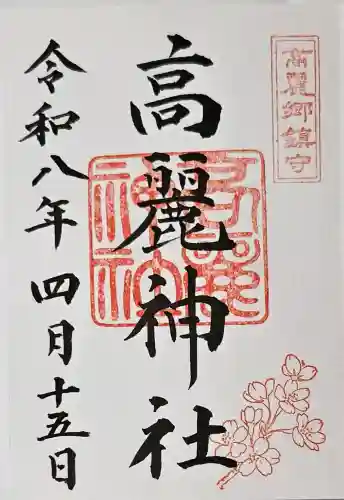 高麗郷鎮守
高麗神社
令和八年四月十五日